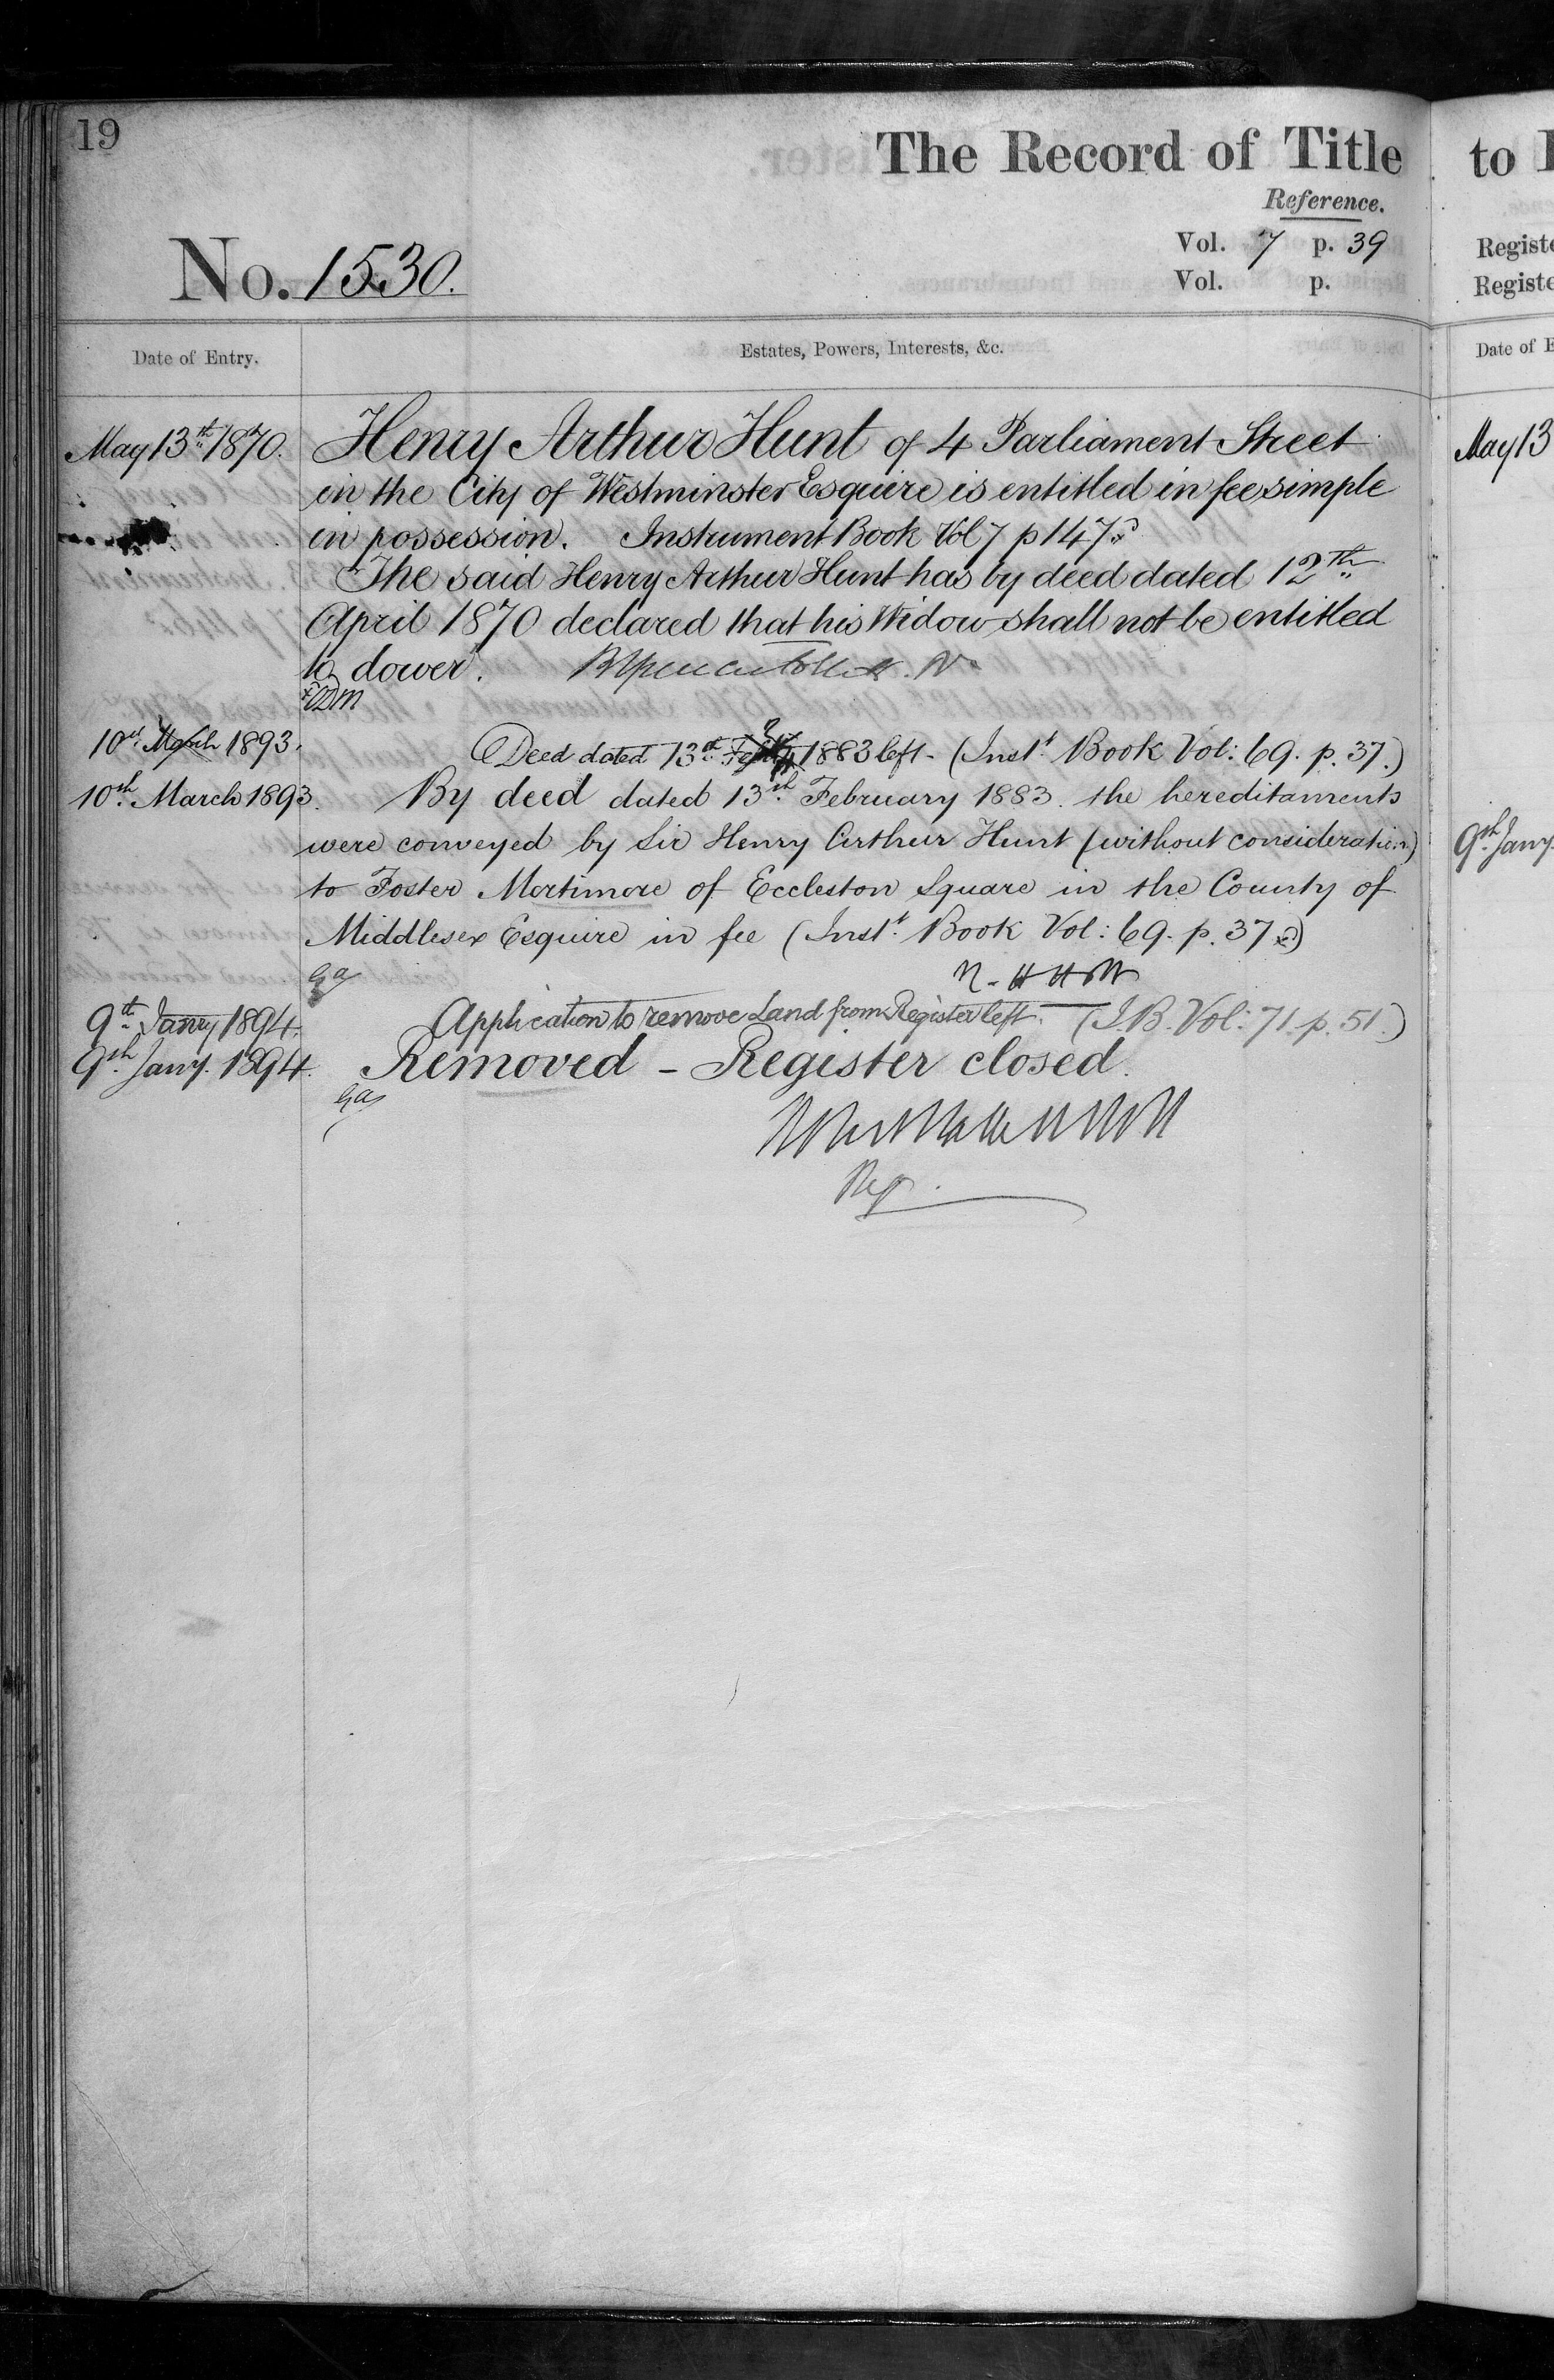 19
The Record of Title
Reference.
No. 1530.
Vol. 7 p. 39
Vol. p.
Date of Entry. Estates, Powers, Interests, &c.
May 13th 1870. Henry Arthur Hunt of 4 Parliament Street
in the City of Westminster Esquire is entitled in fee simple
in possession. Instrument Book Vol 7 p 147
The said Henry Arthur Hunt has by deed dated 12th
April 1870 declared that his Widow shall not be entitled
to dower.
10th March 1893. Deed dated 13th 1883 left - (Inst. Book Vol: 69. p. 37.)
10th March 1893. By deed dated 13th February 1883. the hereditaments
were conveyed by Sir Henry Arthur Hunt (without consideration)
to Foster Mortimore of Eccleston Square in the County of
Middlesex Esquire in fee (Inst. Book Vol: 69. p. 37.)
9th Jany 1894. Application to remove Land from Register left. (I.B. Vol: 71. p. 51.)
9th Jany. 1894. Removed - Register closed.
Reg.
to
Registe
Registe
Date of E
May 13
9th Jany.